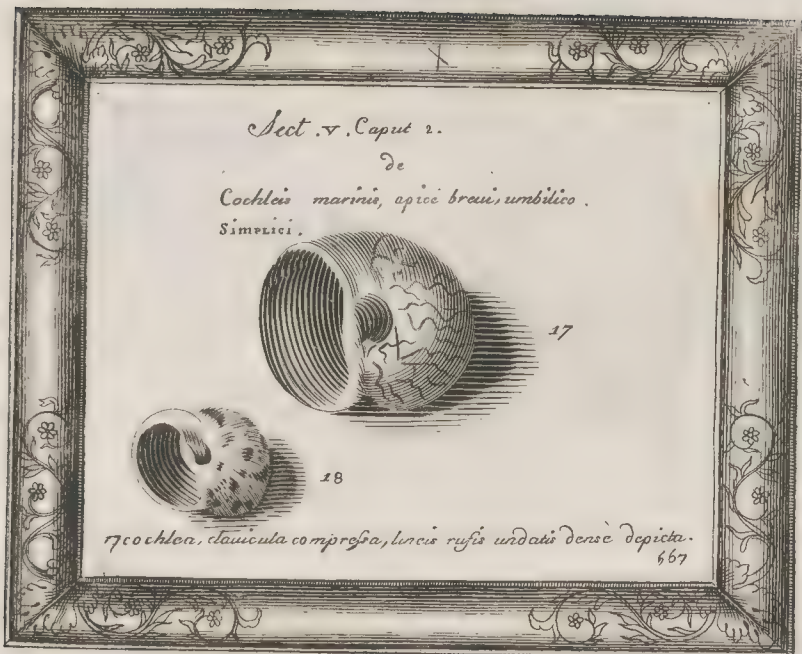 Sect. v. Caput 2.
de
Cochleis marinis, apice breui, umbilico.
Simplici.
17
18
17 cochlea, clauicula compressa, lineis rufis undatis densè depicta.
567